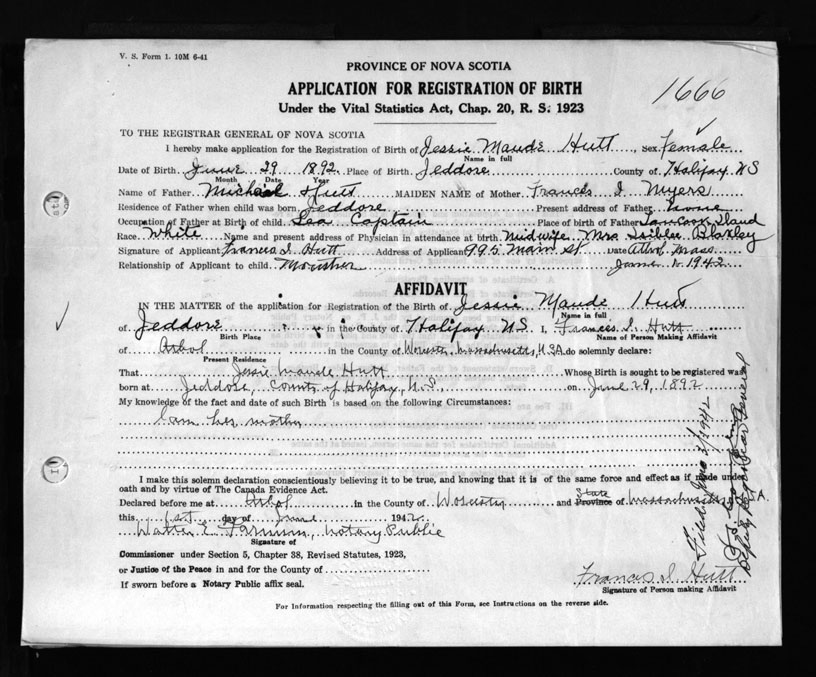 V. S. Form 1. 10M 6-41
PROVINCE OF NOVA SCOTIA
APPLICATION FOR REGISTRATION OF BIRTH
1666
Under the Vital Statistics Act, Chap. 20, R. S. 1923
TO THE REGISTRAR GENERAL OF NOVA SCOTIA
I hereby make application for the Registration of Birth of Jessie Maude Hutt, Sex female
Name in full
Date of Birth. June 29 1892. Place of Birth. Jeddore County of Halifax NS
Month Date Year
Name of Father. Michael Hutt MAIDEN NAME of Mother. Frances I Myers
Residence of Father when child was born. Jeddore Present address of Father.
Occupation of Father at Birth of child. Sea Captain Place of Birth of Father
Race. White Name and present address of Physician in attendance at birth. Midwife Mrs
Signature of Applicant Francis I. Hutt Address of Applicant 995 Main St. Date Athol Mass
Relationship of Applicant to child. Mouther June 1 1942
AFFIDAVIT
IN THE MATTER of the application for Registration of the Birth of Jessie Maude Hutt
Name in full
of Jeddore in the County of Halifax NS I, Frances I. Hutt
Birth Place Name of Person Making Affidavit
of Athol in the County of Worcester, Massachusetts, USA. do solemnly declare:
Present Residence
That Jessie Maude Hutt Whose Birth is sought to be registered was
born at Jeddore, County of Halifax, N.S., on June 29, 1892
My knowledge of the fact and date of such Birth is based on the following Circumstances:
I am her mother
I make this solemn declaration conscientiously believing it to be true, and knowing that it is of the same force and effect as if made under
oath and by virtue of The Canada Evidence Act.
Declared before me at Athol in the County of Worcester and Province State of Massachusetts USA
this 1st day of June 1942.
Walter E. Notary Public
Signature of
Commissioner under Section 5, Chapter 38, Revised Statutes, 1923,
or Justice of the Peace in and for the County of
If sworn before a Notary Public affix seal.
Francis I. Hutt
Signature of Person making Affidavit
For Information respecting the filling out of this Form, see Instructions on the reverse side.
Deputy Registrar General